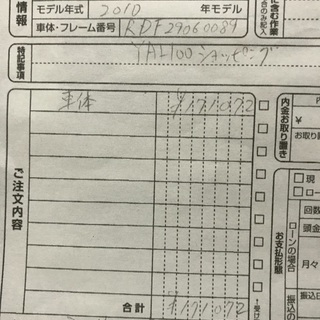 情報
モデル年式 2010 年モデル
車体・フレーム番号 KDF29060089
に含む作業
合のみ記入
特記事項 YAHOOショッピング
内金お取り置き
¥
お取り置き
ご注文内容
車体 ¥171,072
合計 ¥171,072
お支払形態
現
ロー
ローンの場合
回数
頭金
月々
振込の
↑受け